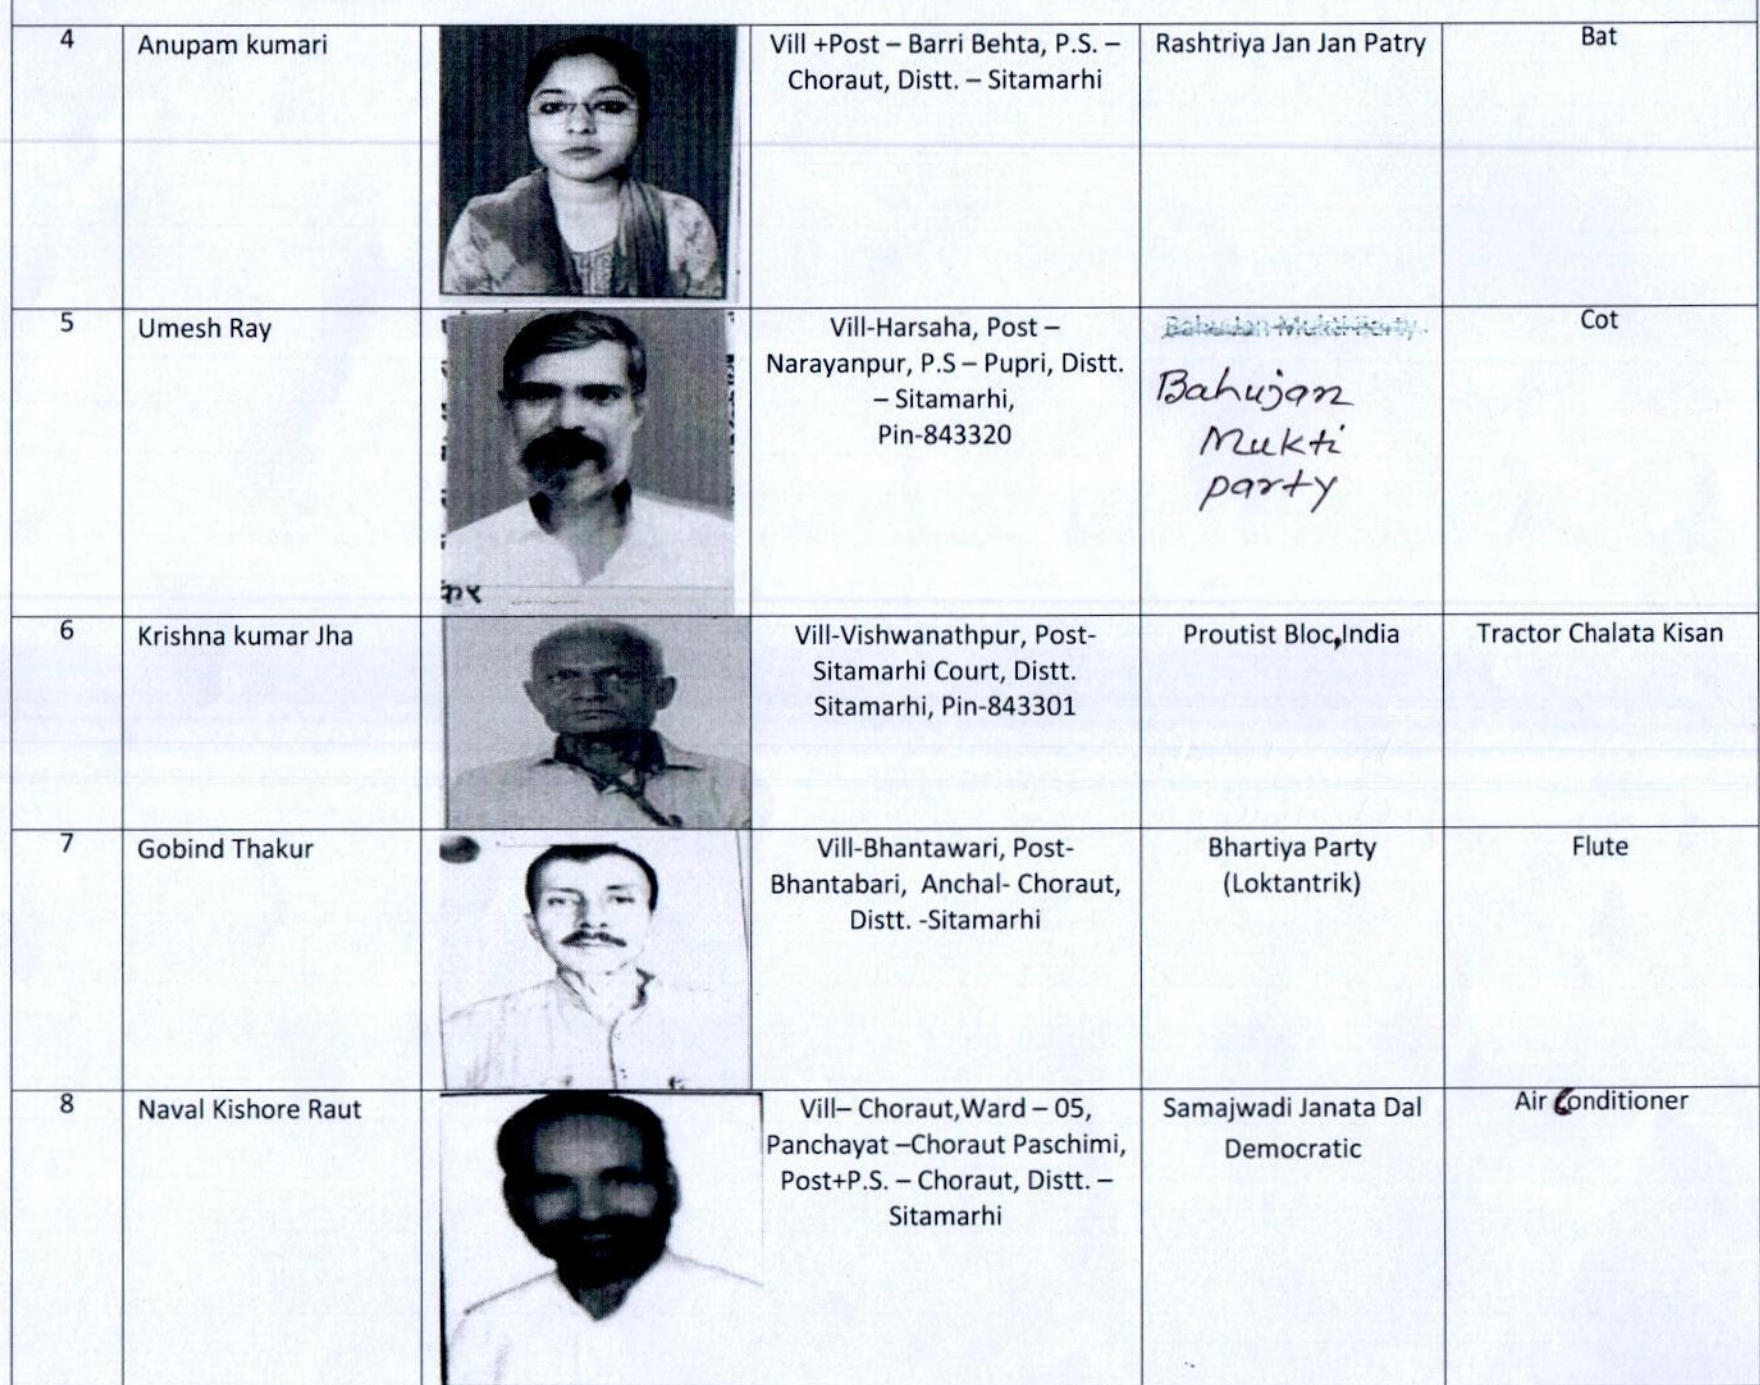 4
Anupam kumari
Vill +Post – Barri Behta, P.S. –
Choraut, Distt. – Sitamarhi
Rashtriya Jan Jan Patry
Bat
5
Umesh Ray
Vill-Harsaha, Post –
Narayanpur, P.S – Pupri, Distt.
– Sitamarhi,
Pin-843320
Bahujan Mukti Party
Bahujan
Mukti
party
Cot
6
Krishna kumar Jha
Vill-Vishwanathpur, Post-
Sitamarhi Court, Distt.
Sitamarhi, Pin-843301
Proutist Bloc,India
Tractor Chalata Kisan
7
Gobind Thakur
Vill-Bhantawari, Post-
Bhantabari, Anchal- Choraut,
Distt. -Sitamarhi
Bhartiya Party
(Loktantrik)
Flute
8
Naval Kishore Raut
Vill– Choraut,Ward – 05,
Panchayat –Choraut Paschimi,
Post+P.S. – Choraut, Distt. –
Sitamarhi
Samajwadi Janata Dal
Democratic
Air Conditioner